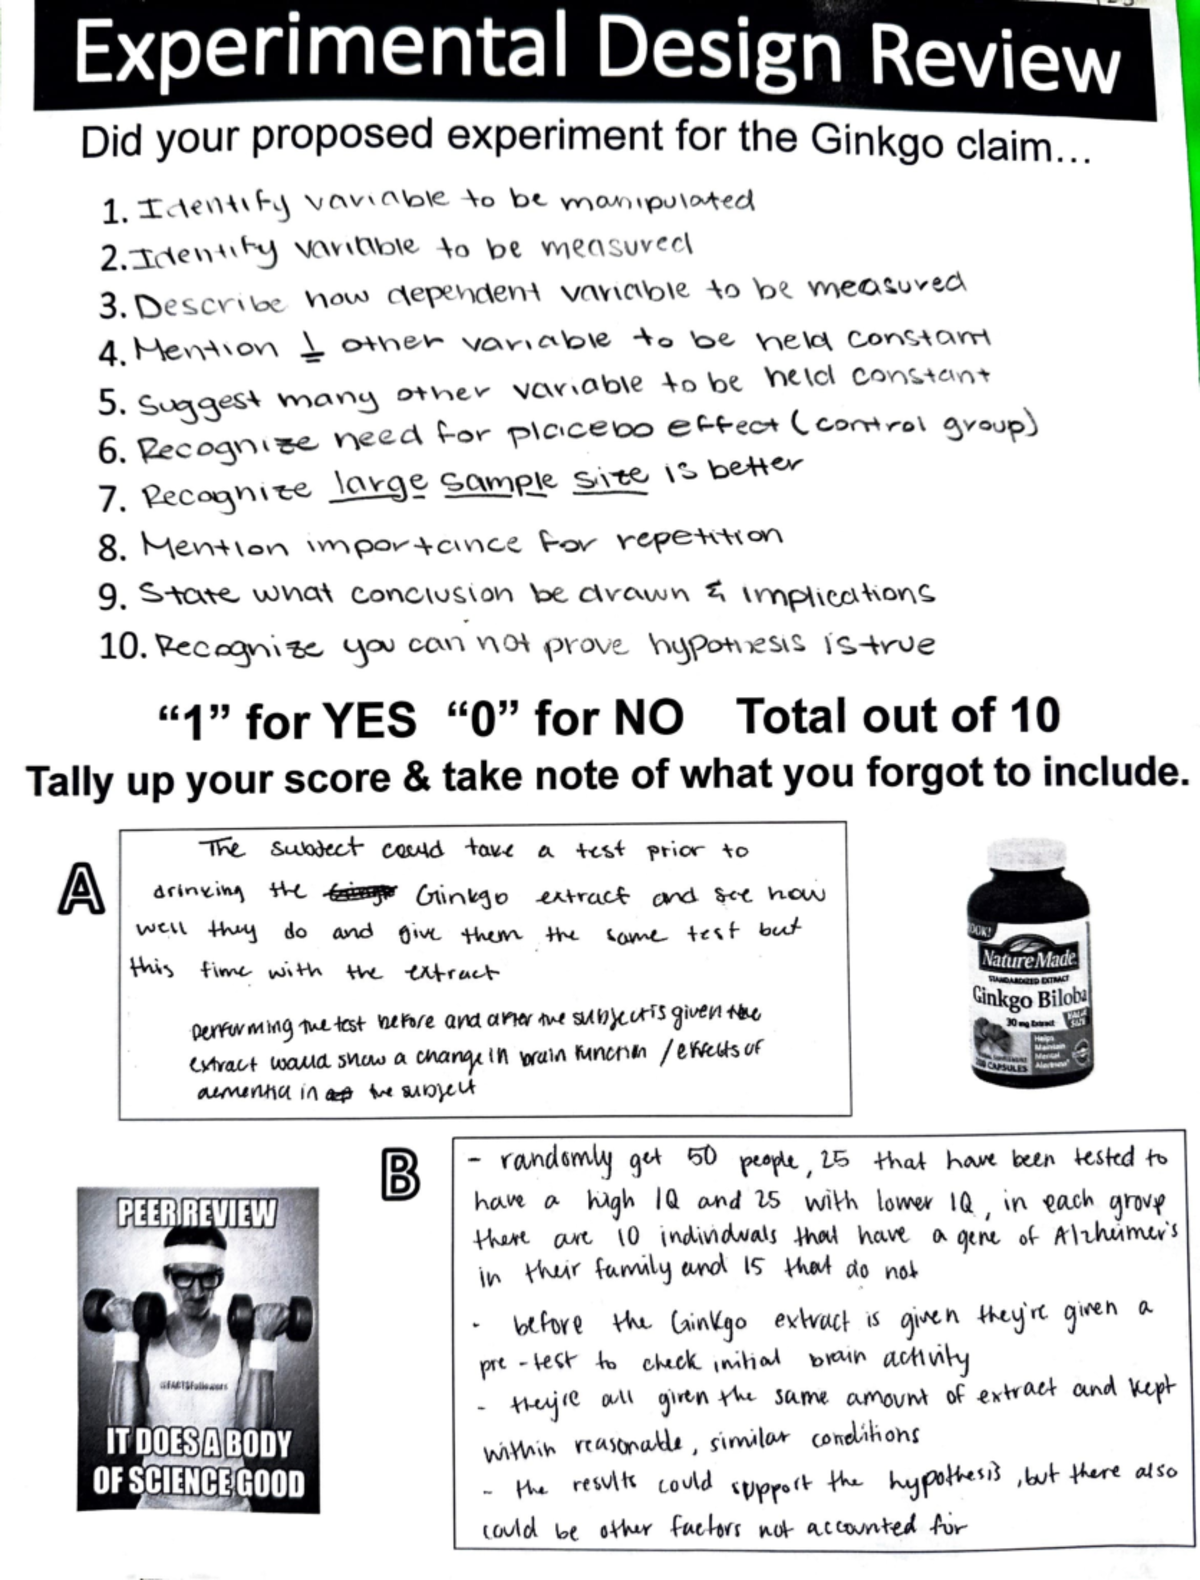 Experimental Design Review
Did your proposed experiment for the Ginkgo claim...
1. Identify variable to be manipulated
2. Identify variable to be measured
3. Describe how dependent variable to be measured
4. Mention 1 other variable to be held constant
5. Suggest many other variable to be held constant
6. Recognize need for placebo effect (control group)
7. Recognize large sample size is better
8. Mention importance for repetition
9. State what conclusion be drawn & implications
10. Recognize you can not prove hypothesis is true
“1” for YES “0” for NO Total out of 10
Tally up your score & take note of what you forgot to include.
A
The subject could take a test prior to
drinking the Ginkgo extract and see how
well they do and give them the same test but
this time with the extract
performing the test before and after the subject is given the
extract would show a change in brain function / effects of
dementia in the subject
LOOK!
Nature Made
STANDARDIZED EXTRACT
Ginkgo Biloba
30 mg Extract
VALUE SIZE
Helps
Maintain
Mental
Alertness
CAPSULES
B
- randomly get 50 people, 25 that have been tested to
have a high IQ and 25 with lower IQ, in each group
there are 10 individuals that have a gene of Alzheimer's
in their family and 15 that do not
- before the Ginkgo extract is given they're given a
pre-test to check initial brain activity
- they're all given the same amount of extract and kept
within reasonable, similar conditions
- the results could support the hypothesis, but there also
could be other factors not accounted for
PEER REVIEW
IT DOES A BODY
OF SCIENCE GOOD